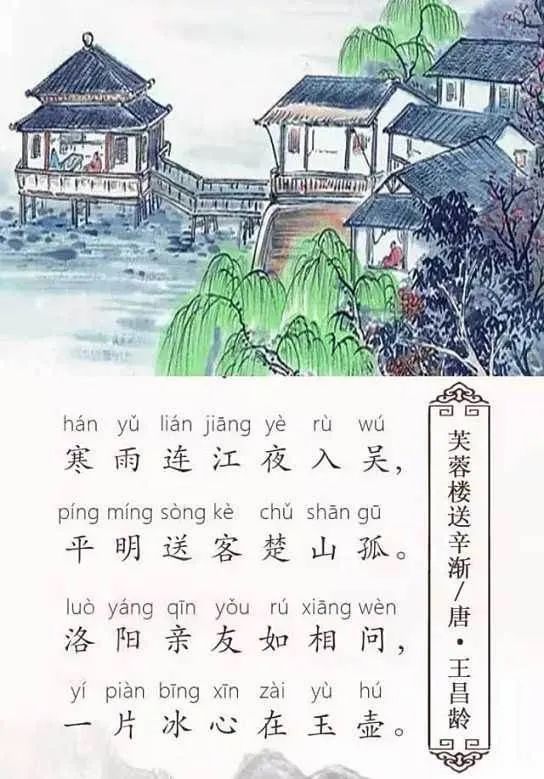 芙蓉楼送辛渐/唐·王昌龄
hán yǔ lián jiāng yè rù wú
寒雨连江夜入吴，
píng míng sòng kè chǔ shān gū
平明送客楚山孤。
luò yáng qīn yǒu rú xiāng wèn
洛阳亲友如相问，
yí piàn bīng xīn zài yù hú
一片冰心在玉壶。